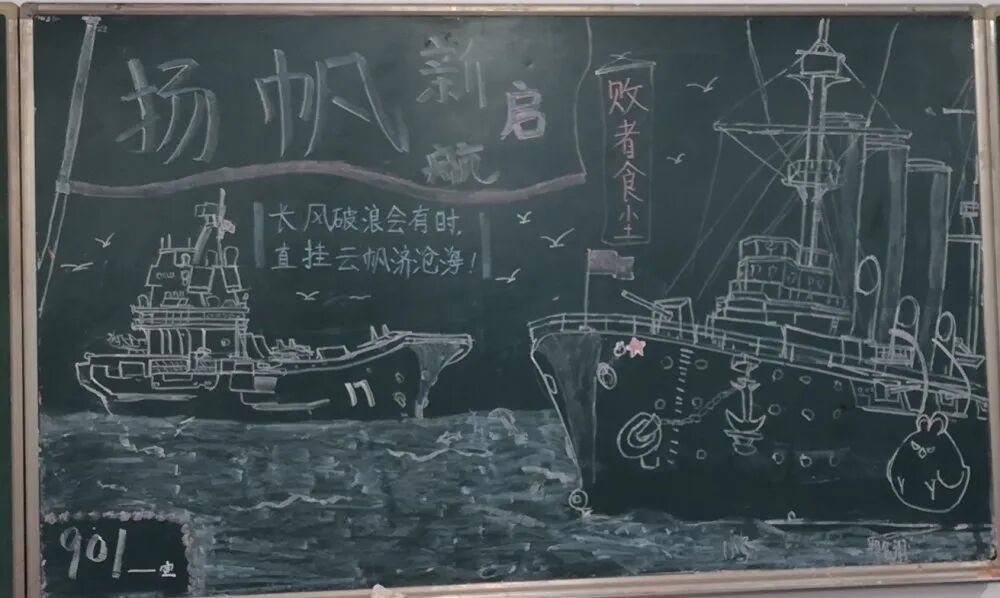 扬帆新启航
败者食尘
长风破浪会有时,
直挂云帆济沧海!
17
901